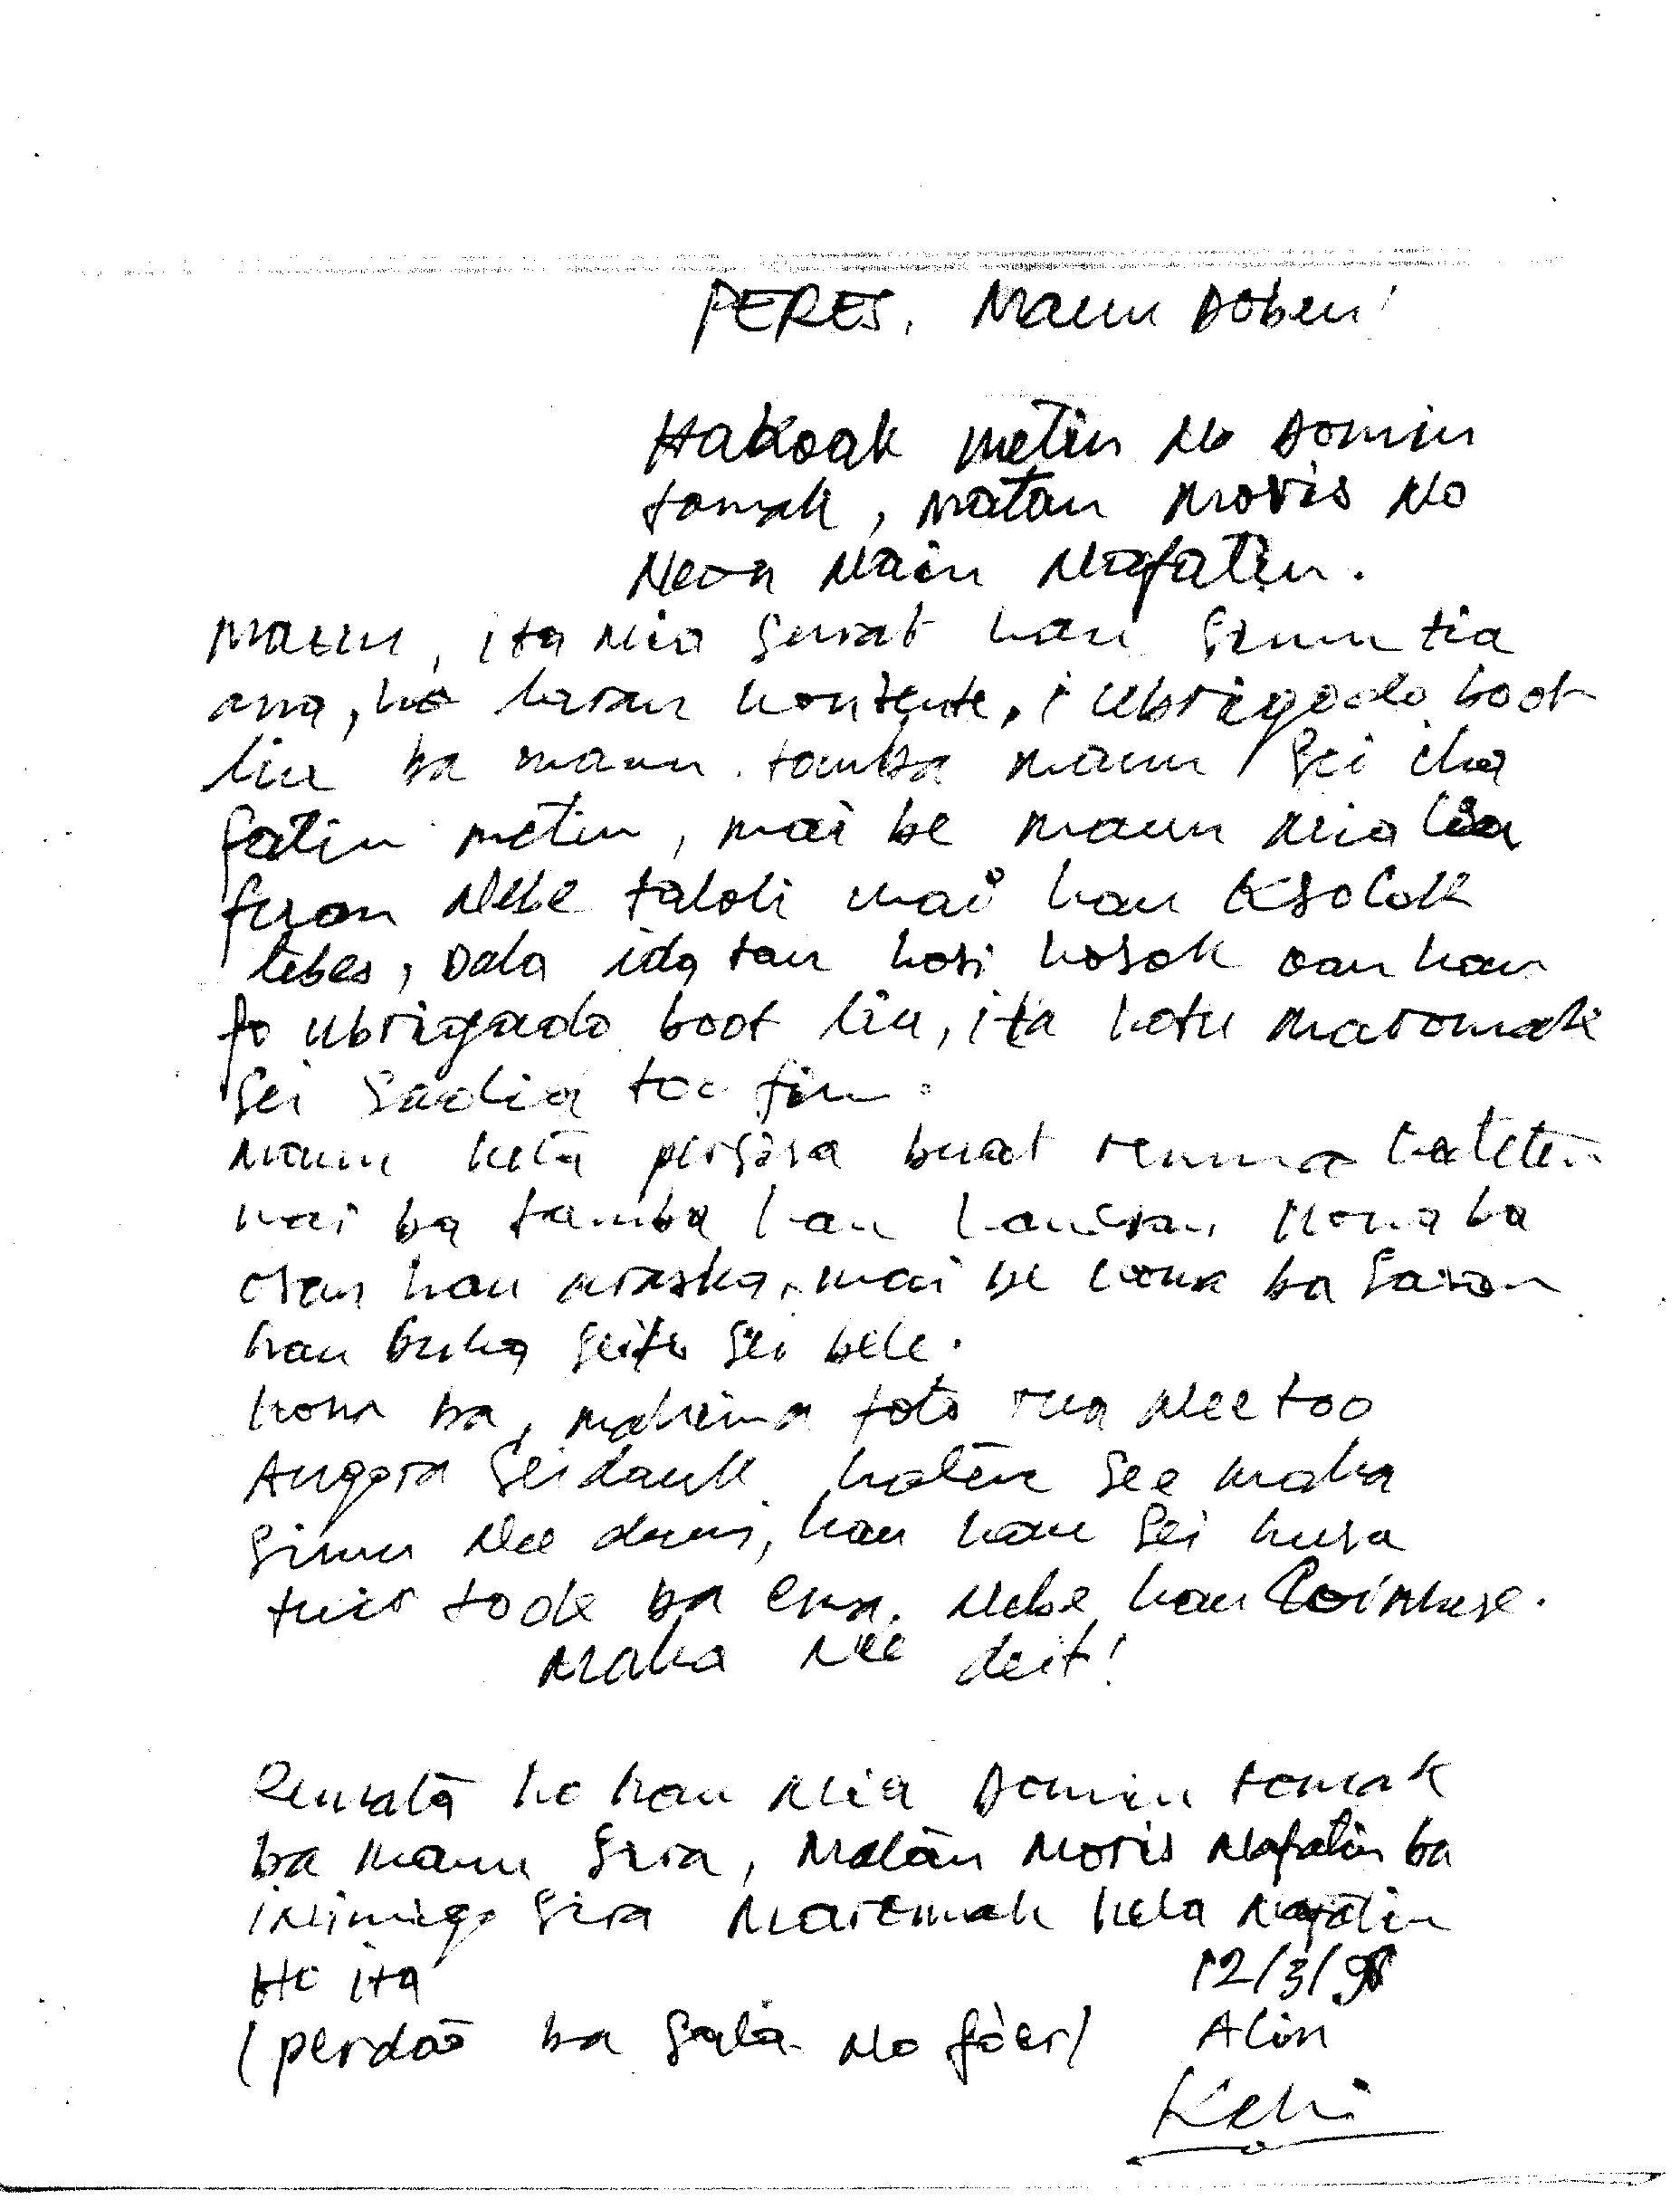 PERES, Maun Doben!
Hakoak metin No Domin
tomak, Matan Moris No
Neon Nain Nafatin.
Maun, ita Nia surat hau simu tia
ona, ho laran kontente, i Ubrigado boot
liu ba maun. tamba maun sei iha
fatin metin, mai be maun Nia lia
fuan Nebe taloli mai hau Ksolok
tebes, Dala ida tan hosi kosok oan hau
fo ubrigado boot liu, ita hotu Maromak
sei sadia too fim.
Maun keta persiza buat ruma hateten
mai ba tamba hau kona ba
osan hau mraska, mai be kona ba saran
hau buka sei bele.
kona ba, makina foto rua Nee too
Angora seidauk hatene see maka
simu Nee duni, hau hau sei husa
tuir tode ba ema. Nebe hau Coinhese.
Maka Nee deit!
Remata ho hau Nia Domin tomak
ba maun sira, Matan Moris Nafatin ba
inimigo sira Maromak hela Nafatin
Ho ita
12/3/98
(perdão ba sala No foer)
Alin
Keli